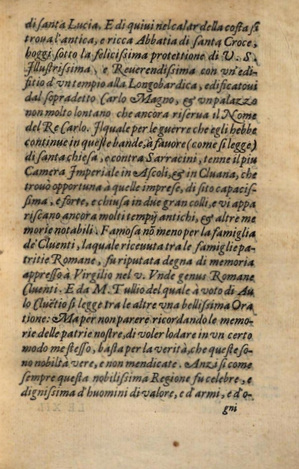 di santa Lucia. E di quivi nel calar della costa si
troua l'antica, e ricca Abbatia di santa Croce,
hoggi sotto la felicissima protettione di V. S.
Illustrissima, e Reuerendissima con vn'edi-
ficio d'vn tempio alla Longobardica, edificatoui
dal sopradetto Carlo Magno, & vn palazzo
non molto lontano che ancora riserua il Nome
del Re Carlo. Il quale per le guerre che egli hebbe
continue in queste bande, à fauore (come si legge)
di santa chiesa, e contra Sarracini, tenne il piu
Camera Imperiale in Ascoli, & in Cluana, che
trouò opportuna à quelle imprese, di sito capacis-
sima, e forte, e chiusa in due gran colli, e vi appa
riscano ancora molti tempij antichi, & altre me
morie notabili. Famosa nõ meno per la famiglia
de Cluenti, la quale riceuuta tra le famiglie pa-
tritie Romane, fu riputata degna di memoria
appresso à Virgilio nel v. Vnde genus Romane
Cluenti. E da M. Tullio del quale à voto di Au
lo Cluẽtio si legge tra le altre vna bellissima Ora
tione: Ma per non parere ricordando le memo-
rie delle patrie nostre, di voler lodare in vn certo
modo me stesso, basta per la verità, che queste so-
no nobiltà vere, e non mendicate. Anzi si come
sempre questa nobilissima Regione fu celebre, e
dignissima d'huomini di valore, e d'armi, e d'o-
gni